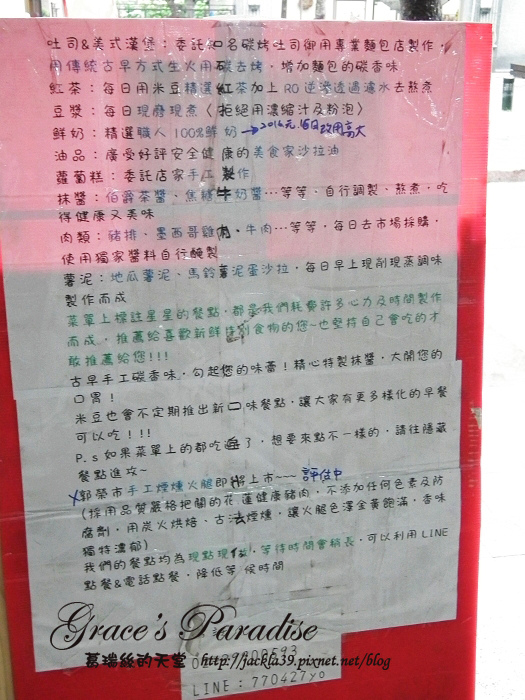 吐司&美式漢堡：委託知名碳烤吐司御用專業麵包店製作，
用傳統古早方式生火用碳去烤，增加麵包的碳香味
紅茶：每日用米豆精選紅茶加上RO逆滲透過濾水去熬煮
豆漿：每日現磨現煮〈拒絕用濃縮汁及粉泡〉
鮮奶：精選職人100%鮮奶→2014元/1/6日改用高大
油品：廣受好評安全健康的美食家沙拉油
蘿蔔糕：委託店家手工製作
抹醬：伯爵茶醬、焦糖牛奶醬…等等，自行調製、熬煮，吃
得健康又美味
肉類：豬排、墨西哥雞肉、牛肉…等等，每日去市場採購，
使用獨家醬料自行醃製
薯泥：地瓜薯泥、馬鈴薯泥蛋沙拉，每日早上現削現蒸調味
製作而成
菜單上標註星星的餐點，都是我們耗費許多心力及時間製作
而成，推薦給喜歡新鮮特別食物的您~也堅持自己會吃的才
敢推薦給您!!!
古早手工碳香味，勾起您的味蕾！精心特製抹醬，大開您的
口胃！
米豆也會不定期推出新口味餐點，讓大家有更多樣化的早餐
可以吃！!!
P.s如果菜單上的都吃過了，想要來點不一樣的，請往隱藏
餐點進攻~
X郭榮市手工煙燻火腿即將上市~~~ 評估中
(採用品質嚴格把關的花蓮健康豬肉，不添加任何色素及防
腐劑，用炭火烘焙、古法煙燻，讓火腿色澤金黃飽滿，香味
獨特濃郁)
我們的餐點均為現點現做，等待時間會稍長，可以利用LINE
點餐&電話點餐，降低等候時間
Grace's Paradise
葛瑞絲的天堂 http://jackla39.pixnet.net/blog
LINE：770427yo